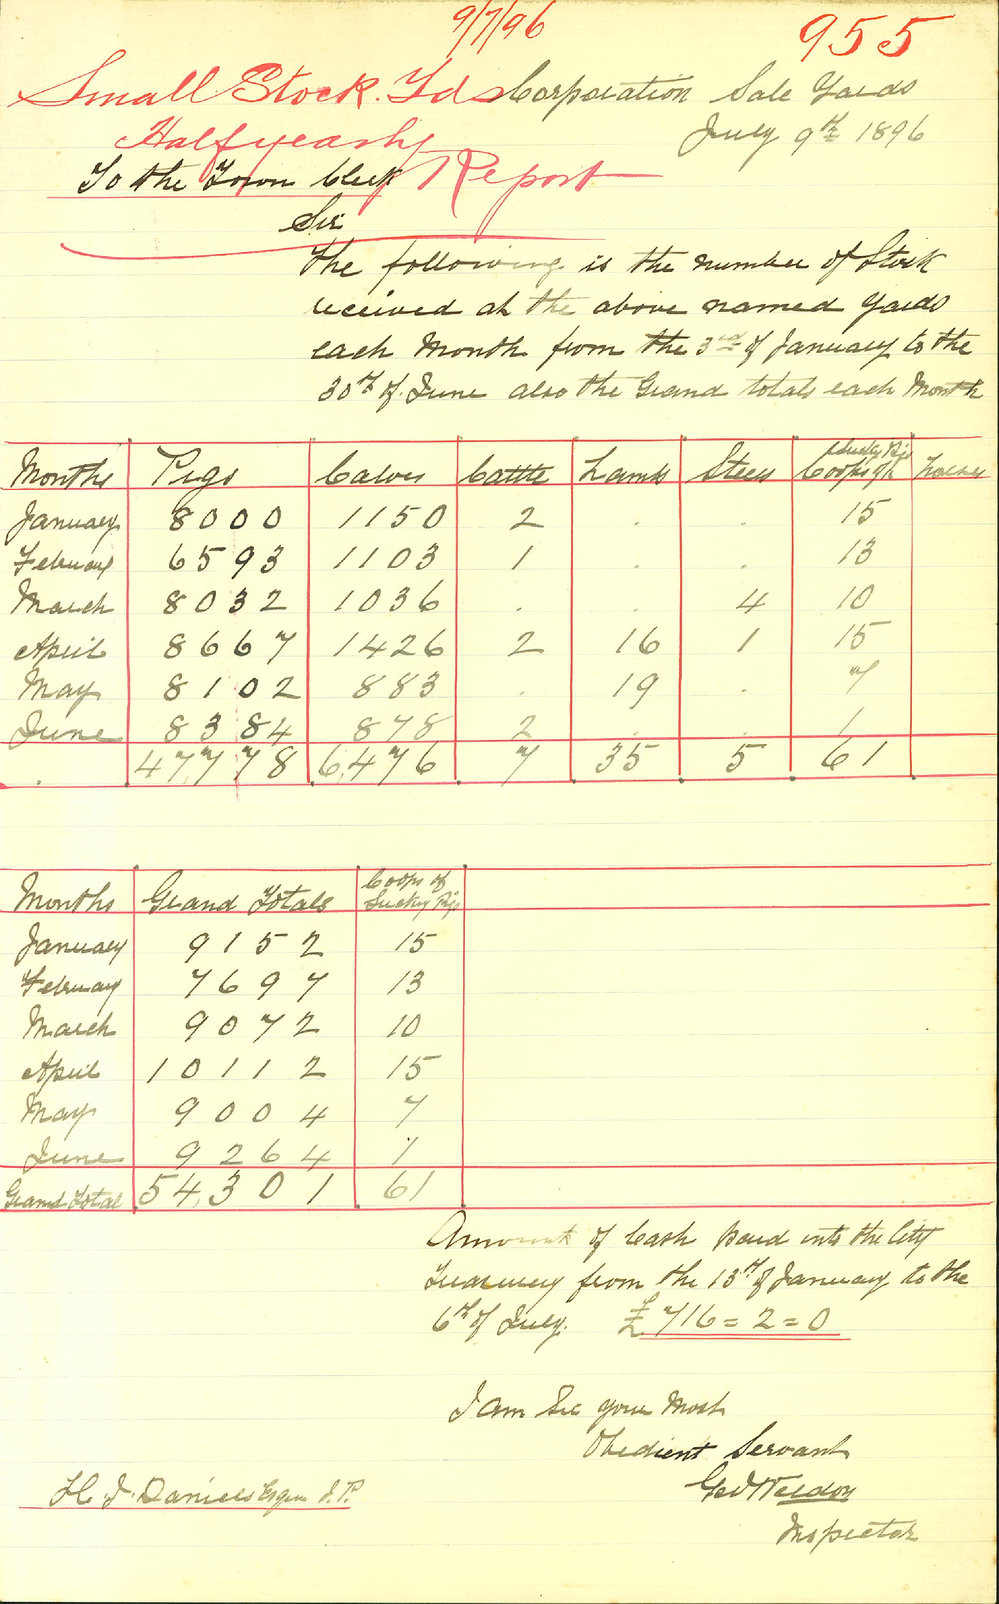 9/7/96
955
Small Stock. Yds Corporation Sale Yards
Halfyearly July 9th 1896
To the Town Clerk Report
Sir
The following is the number of Stock
received at the above named Yards
each Month from the 3rd of January to the
30th of June also the Grand totals each Month
Months Pigs Calves Cattle Lambs Steers Coops of Sucky Pigs
January 8000 1150 2 . . 15
February 6593 1103 1 . . 13
March 8032 1036 . . 4 10
April 8667 1426 2 16 1 15
May 8102 883 . 19 . 7
June 8384 878 2 . . 1
47,778 6,476 7 35 5 61
Months Grand Totals Coops of Sucky Pigs
January 9152 15
February 7697 13
March 9072 10
April 10112 15
May 9004 7
June 9264 1
Grand Total 54,301 61
Amount of Cash paid into the City
Treasurey from the 13th of January to the
6th of July. £716=2=0
I am Sir your Most
Obedient Servant
Geo Weldon
Inspector
H. J. Daniels Esquire J.P.